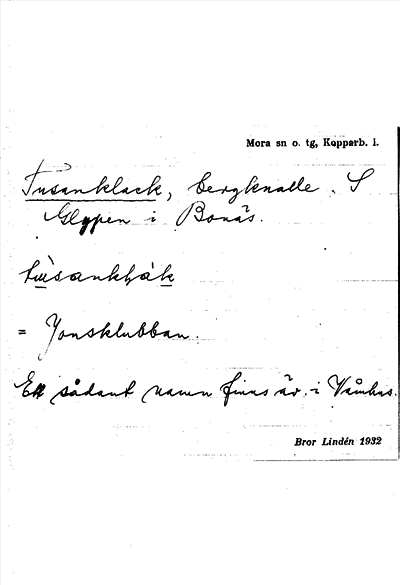 Mora sn o. tg, Kopparb. l.
Tusanklack, bergknalle. S
Glypen i Bonäs.
= Jonsklubban.
Ett sådant namn finns äv. i Våmhus.
Bror Lindén 1932